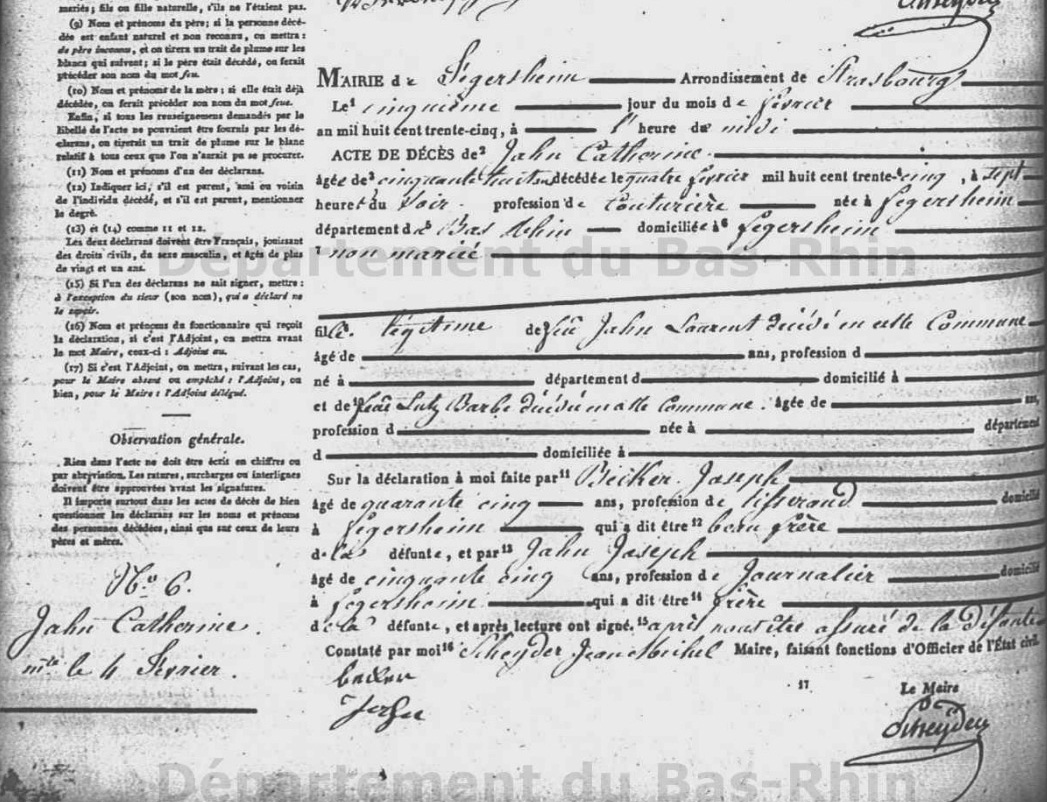 mariés; fils ou fille naturelle, s'ils ne l'étaient pas.
(9) Nom et prénoms du père; si la personne décé-
dée est enfant naturel et non reconnu, on mettra:
de père inconnu, et on tirera un trait de plume sur les
blancs qui suivent; si le père était décédé, on ferait
précéder son nom du mot feu.
(10) Nom et prénoms de la mère; si elle était déjà
décédée, on ferait précéder son nom du mot feue.
Enfin, si tous les renseignemens demandés par le
libellé de l'acte ne pouvaient être fournis par les dé-
clarans, on tirerait un trait de plume sur le blanc
relatif à tous ceux que l'on n'aurait pu se procurer.
(11) Nom et prénoms d'un des déclarans.
(12) Indiquer ici, s'il est parent, ami ou voisin
de l'individu décédé, et s'il est parent, mentionner
le degré.
(13) et (14) comme 11 et 12.
Les deux déclarans doivent être Français, jouissant
des droits civils, du sexe masculin, et âgés de plus
de vingt et un ans.
(15) Si l'un des déclarans ne sait signer, mettre:
à l'exception du sieur (son nom), qui a déclaré ne
le savoir.
(16) Nom et prénoms du fonctionnaire qui reçoit
la déclaration, si c'est l'Adjoint, on mettra avant
le mot Maire, ceux-ci: Adjoint au.
(17) Si c'est l'Adjoint, on mettra, suivant les cas,
pour le Maire absent ou empêché: l'Adjoint, ou
bien, pour le Maire: l'Adjoint délégué.
Observation générale.
Rien dans l'acte ne doit être écrit en chiffres ou
par abréviation. Les ratures, surcharges ou interlignes
doivent être approuvées avant les signatures.
Il importe surtout dans les actes de décès de bien
questionner les déclarans sur les noms et prénoms
des personnes décédées, ainsi que sur ceux de leurs
pères et mères.
No. 6.
Jahn Catherine.
mte le 4 Février.
MAIRIE de Fegersheim Arrondissement de Strasbourg
Le1 cinquième jour du mois de février
an mil huit cent trente-cinq, à l' heure de midi
ACTE DE DÉCÈS de2 Jahn Catherine
âgée de3 cinquante huit ans décédée le quatre février mil huit cent trente-cinq, à sept
heures du soir. profession de couturière née à fegersheim
département du5 Bas Rhin domiciliée à6 fegersheim
7 non mariée
Département du Bas-Rhin
fille légitime de feu Jahn Laurent décédé en cette Commune
âgé de ans, profession d
né à département d domicilié à
et de10 feue Lutz Barbe décédée en cette Commune. âgée de ans,
profession d née à département
d domiciliée à
Sur la déclaration à moi faite par11 Becker Joseph
âgé de quarante cinq ans, profession de tisserand domicilié
à fegersheim qui a dit être12 beau frère
de la défunte, et par13 Jahn Joseph
âgé de cinquante cinq ans, profession de Journalier domicilié
à fegersheim qui a dit être14 frère
de la défunte, et après lecture ont signé.15 après nous être assuré de la défunte
Constaté par moi16 Scheyder Jean Michel Maire, faisant fonctions d'Officier de l'État civil.
becker
17 Le Maire
Scheyder
Département du Bas-Rhin